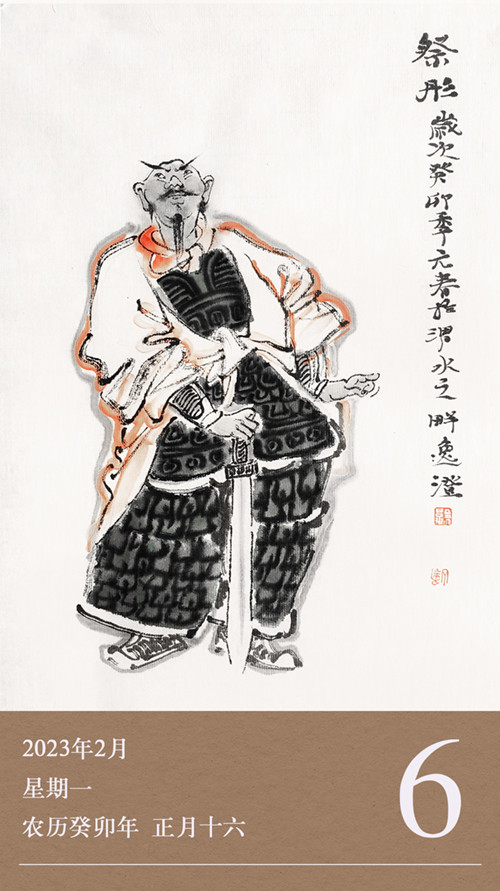 祭肜歲次癸卯季元春於渭水之畔逸澄
2023年2月
星期一
农历癸卯年 正月十六
6